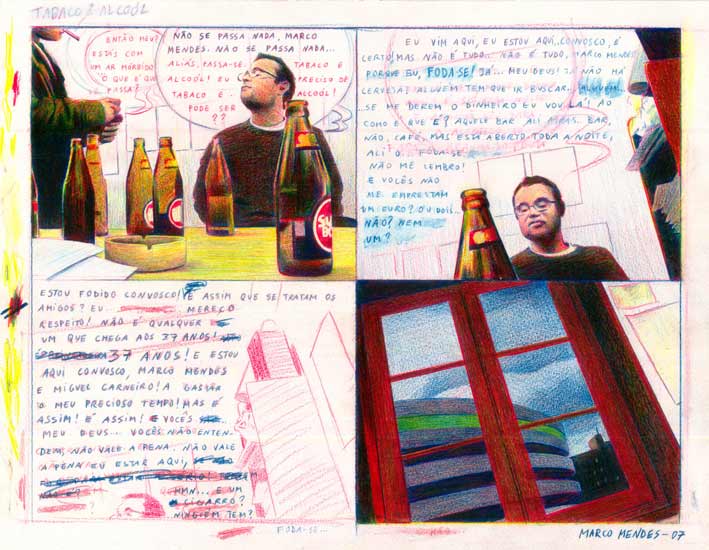 TABACO & ALCOOL
ENTÃO MEU?
ESTÁS COM
UM AR MÓRBIDO
O QUE É QUE
SE PASSA?
NÃO SE PASSA NADA, MARCO
MENDES. NÃO SE PASSA NADA...
ALIÁS, PASSA-SE. TABACO E
ALCOOL! EU PRECISO DE
TABACO E ALCOOL!
PODE SER
??
EU VIM AQUI, EU ESTOU AQUI.. CONVOSCO, É
CERTO! MAS NÃO É TUDO... NÃO É TUDO, MARCO MENDES
PORQUE EU, FODA-SE! JÁ... MEU DEUS! JÁ NÃO HÁ
CERVEJA! ALGUÉM TEM QUE IR BUSCAR... ALGUÉM...
SE ME DEREM O DINHEIRO EU VOU LÁ! AO
COMO É QUE É? AQUELE BAR ALI ATRÁS. BAR,
NÃO, CAFÉ, MAS ESTÁ ABERTO TODA A NOITE,
ALI O... FODA-SE...
NÃO ME LEMBRO!
E VOCÊS NÃO
ME EMPRESTAM
UM EURO? OU DOIS...
NÃO? NEM
UM?
ESTOU FODIDO CONVOSCO! É ASSIM QUE SE TRATAM OS
AMIGOS? EU MEREÇO
RESPEITO! NÃO É QUALQUER
UM QUE CHEGA AOS 37 ANOS!
37 ANOS! E ESTOU
AQUI CONVOSCO, MARCO MENDES
E MIGUEL CARNEIRO! A GASTAR
O MEU PRECIOSO TEMPO! MAS É
ASSIM! É ASSIM! E VOCÊS
MEU DEUS... VOCÊS NÃO ENTEN-
DEM, NÃO VALE A PENA. NÃO VALE
A PENA EU ESTAR AQUI,
HMN... E UM
CIGARRO?
NINGUÉM TEM?
FODA-SE...
MARCO MENDES-07